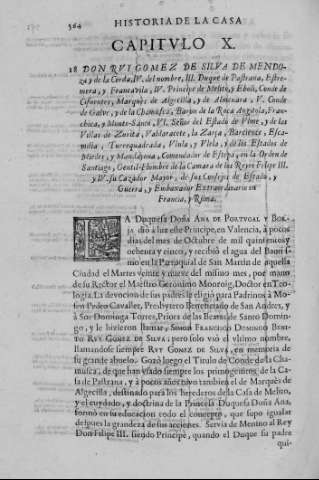 564 HISTORIA DE LA CASA
CAPITVLO X.
18 DON RVI GOMEZ DE SILVA DE MENDO-
za, y de la Cerda, IV. del nombre, III. Duque de Pastrana, Estre-
mera, y Francavila, IV. Principe de Melito, y Eboli, Conde de
Cifuentes, Marquès de Algecilla, y de Almenara, V. Conde
de Galve, y de la Chamusca, Baron de la Roca Anguitola, Fran-
chica, y Monte-Santo, VI. Señor del Estado de Vlme, y de las
Villas de Zorita, Valdaracete, la Zarça, Barciense, Esca-
milla, Torrequadrada, Viñola, y Vlela, y de los Estados de
Miedes, y Mandayona, Comendador de Estepa, en la Orden de
Santiago, Gentil-Hombre de la Camara de los Reyes Felipe III.
y IV. su Cazador Mayor, de sus Consejos de Estado, y
Guerra, y Embaxador Extraordinario en
Francia, y Roma.
LA Duquesa Doña ANA DE PORTVGAL Y BOR-
JA, diò à luz este Principe, en Valencia, à pocos
dias del mes de Octubre de mil quinientos y
ochenta y cinco, y recibiò el agua del Bautis-
mo en la Parroquial de San Martin de aquella
Ciudad el Martes veinte y nueve del mismo mes, por mano
de su Rector el Maestro Geronimo Monroig, Doctor en Teo-
logia. La devocion de sus padres le eligiò para Padrinos à Mo-
sen Pedro Cavaller, Presbytero Beneficiado de San Andres, y
à Sor Dominga Torres, Priora de las Beatas de Santo Domin-
go, y le hizieron llamar, SIMON FRANCISCO DOMINGO BENI-
TO RVY GOMEZ DE SILVA; pero solo vsò el vltimo nombre,
llamandose siempre RVY GOMEZ DE SILVA, en memoria de
su grande abuelo. Gozò luego el Titulo de Conde de la Cha-
musca, de que han vsado siempre los primogenitos de la Ca-
sa de Pastrana, y à pocos años tuvo tambien el de Marquès de
Algecilla, destinado para los herederos de la Casa de Melito,
y el cuydado, y doctrina de la Princesa Duquesa Doña Ana,
formò en su educacion todo el concepto, que supo igualar
despues la grandeza de sus acciones. Servia de Menino al Rey
Don Felipe III. siendo Principe, quando el Duque su padre
qui-